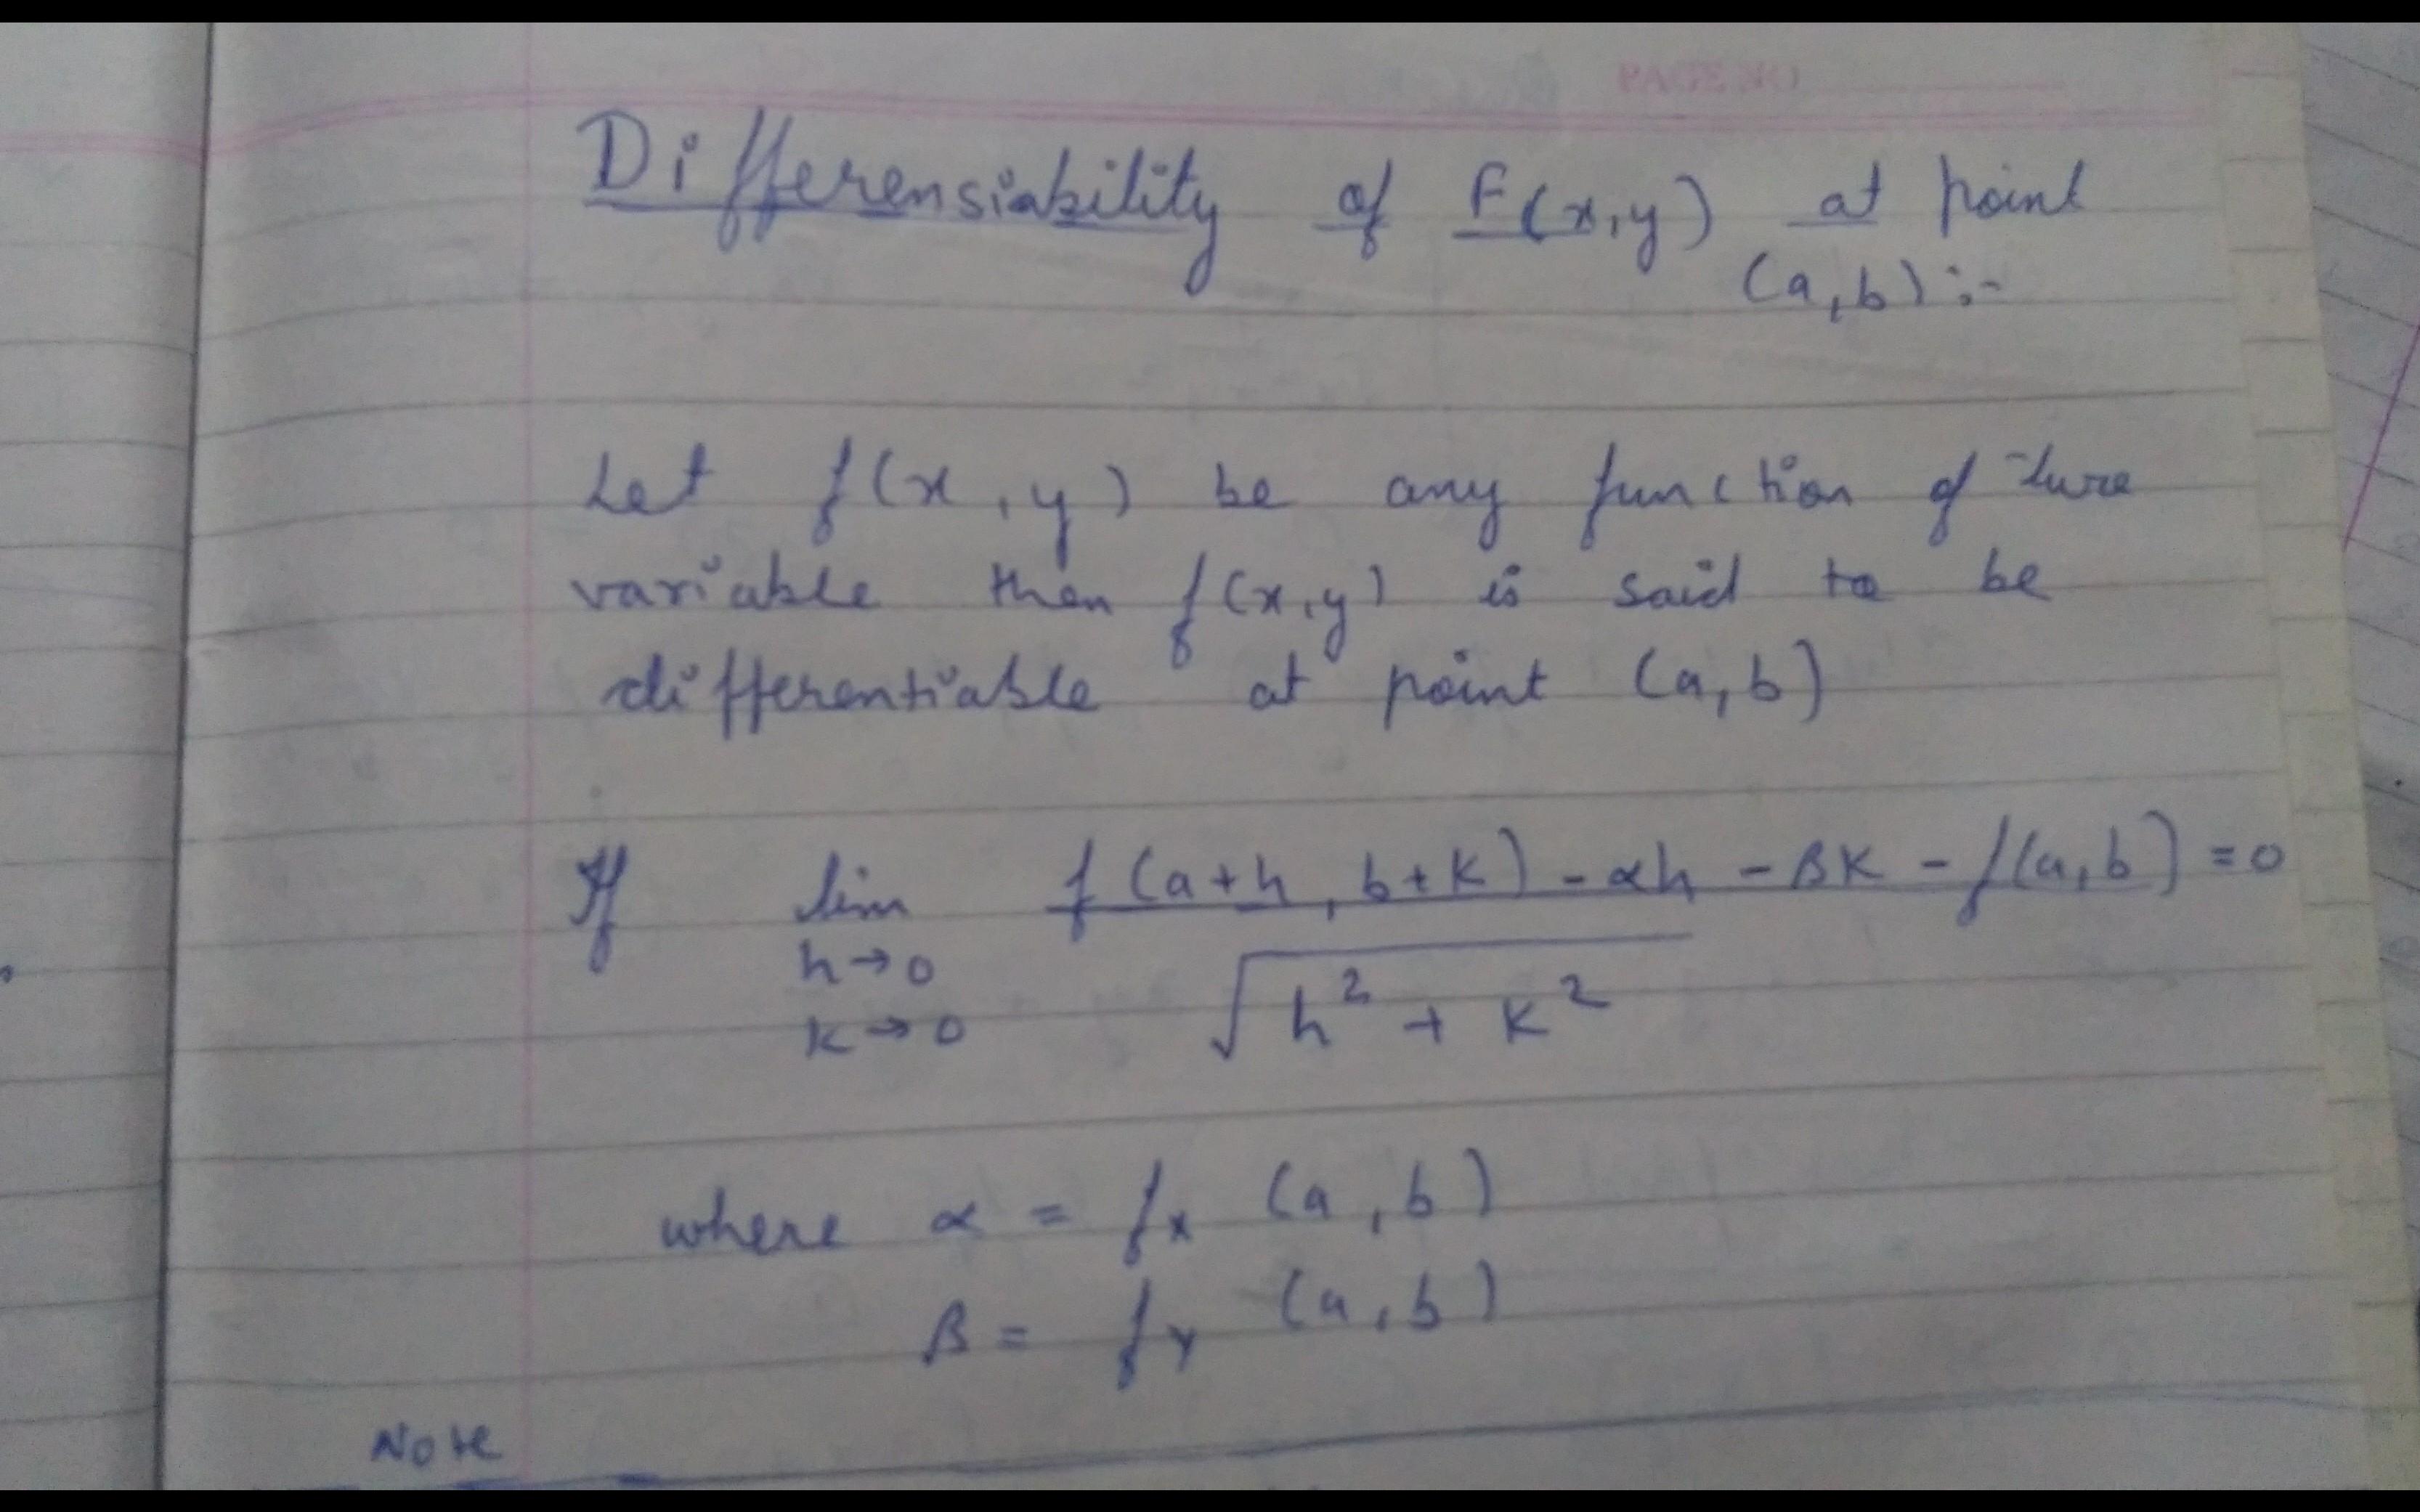 PAGE NO
Differensiability of F(x,y) at point
(a,b):-
Let f(x,y) be any function of two
variable then f(x,y) is said to be
differentiable at point (a,b)
If lim f(a+h, b+k) - αh - βk - f(a,b) = 0
h→0
√h² + k²
k→0
where α = fx (a,b)
β = fy (a,b)
Note